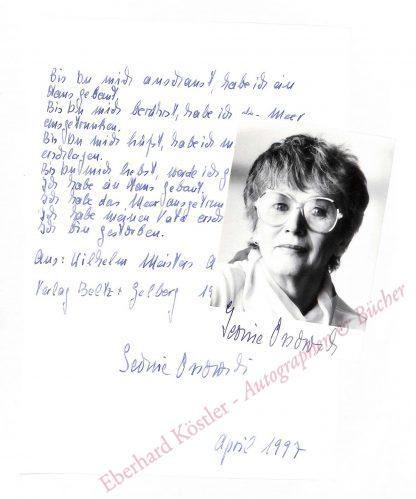 Bis Du mich anschaust, habe ich ein
Haus gebaut.
Bis Du mich berührst, habe ich das Meer
ausgetrunken.
Bis Du mich küßt, habe ich m
erschlagen.
Bis Du mich liebst, werde ich g
Ich habe ein Haus gebaut.
Ich habe das Meer ausgetrun
Ich habe meinen Vater ersch
Ich bin gestorben.
Aus: Wilhelm Meisters A
Verlag Beltz + Gelberg 19
Leonie Ossowski
Leonie Ossowski
April 1997
Eberhard Köstler - Autographen & Bücher